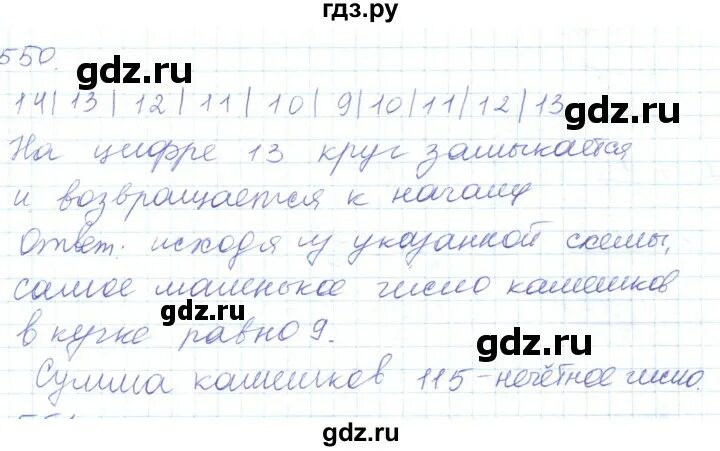 гдз.ру
550.
gdz.ru
gdz.ru
14|13|12|11|10|9|10|11|12|13
На цифре 13 круг замыкается
и возвращается к началу
gdz.ru
gdz.ru
Ответ: исходя из указанной схемы,
самое маленькое число камешков
gdz.ru
в кучке равно 9.
gdz.ru
Сумма камешков 115 - нечётное число.
gdz.ru
gdz.ru